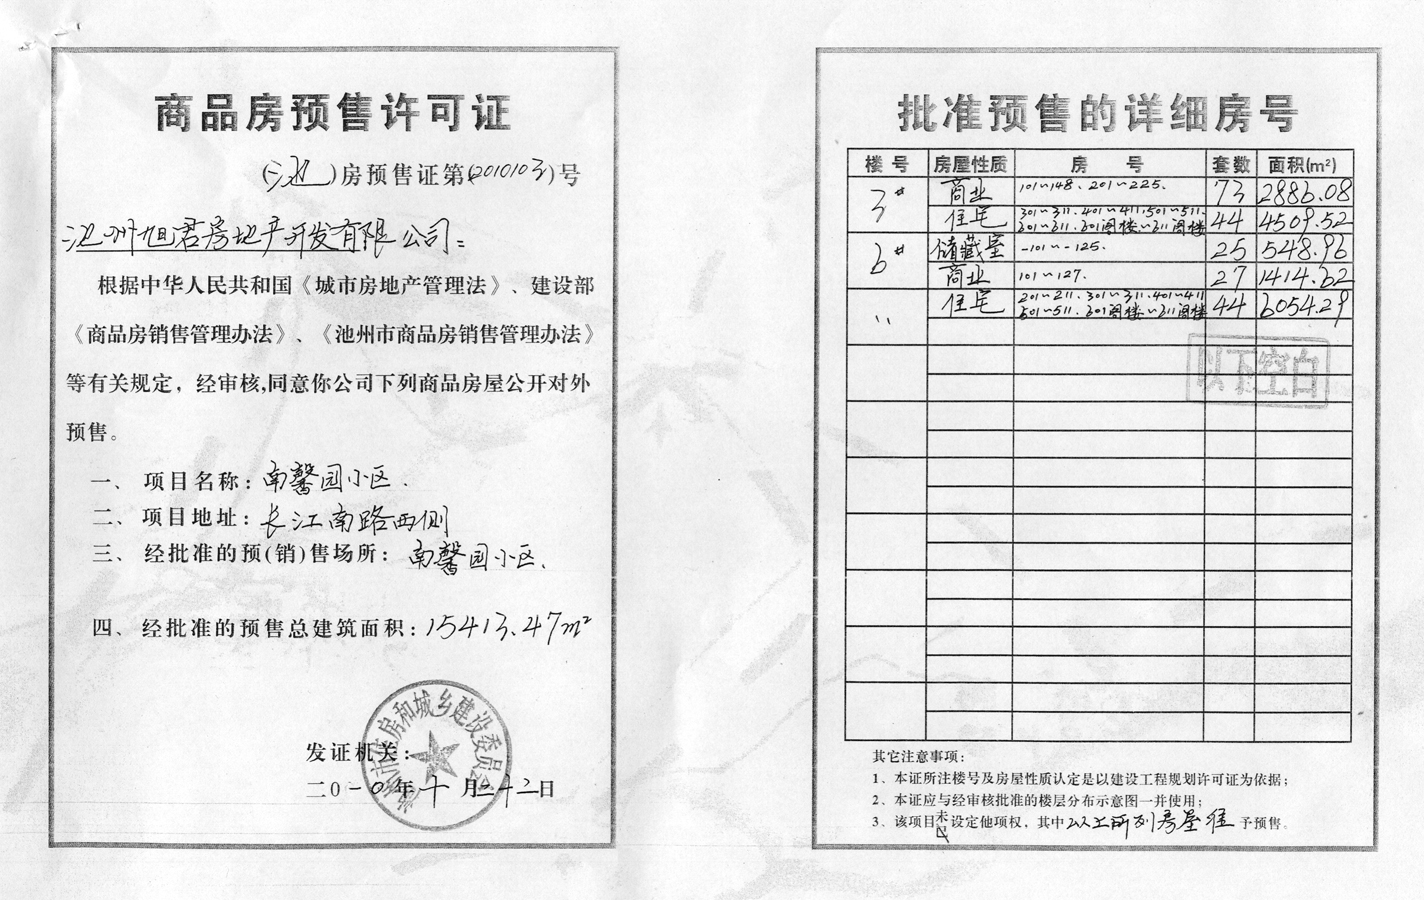 商品房预售许可证
(池)房预售证第(2010103)号
池州旭君房地产开发有限公司:
根据中华人民共和国《城市房地产管理法》、建设部
《商品房销售管理办法》、《池州市商品房销售管理办法》
等有关规定，经审核,同意你公司下列商品房屋公开对外
预售。
一、项目名称：南馨园小区.
二、项目地址：长江南路西侧
三、经批准的预(销)售场所：南馨园小区.
四、经批准的预售总建筑面积：15413.47m²
发证机关：
池州市住房和城乡建设委员会
二0一0年十月二十二日
批准预售的详细房号
楼号 房屋性质 房号 套数 面积(m²)
3# 商业 101~148、201~225、 73 2886.08
住宅 301~311.401~411.501~511. 44 4509.52
301~311.301阁楼~311阁楼
6# 储藏室 -101~-125. 25 548.96
商业 101~127. 27 1414.62
〃 住宅 201~211.301~311.401~411 44 6054.29
501~511.301阁楼~311阁楼
以下空白
其它注意事项：
1、本证所注楼号及房屋性质认定是以建设工程规划许可证为依据；
2、本证应与经审核批准的楼层分布示意图一并使用；
3、该项目未设定他项权，其中以上所列房屋准予预售。